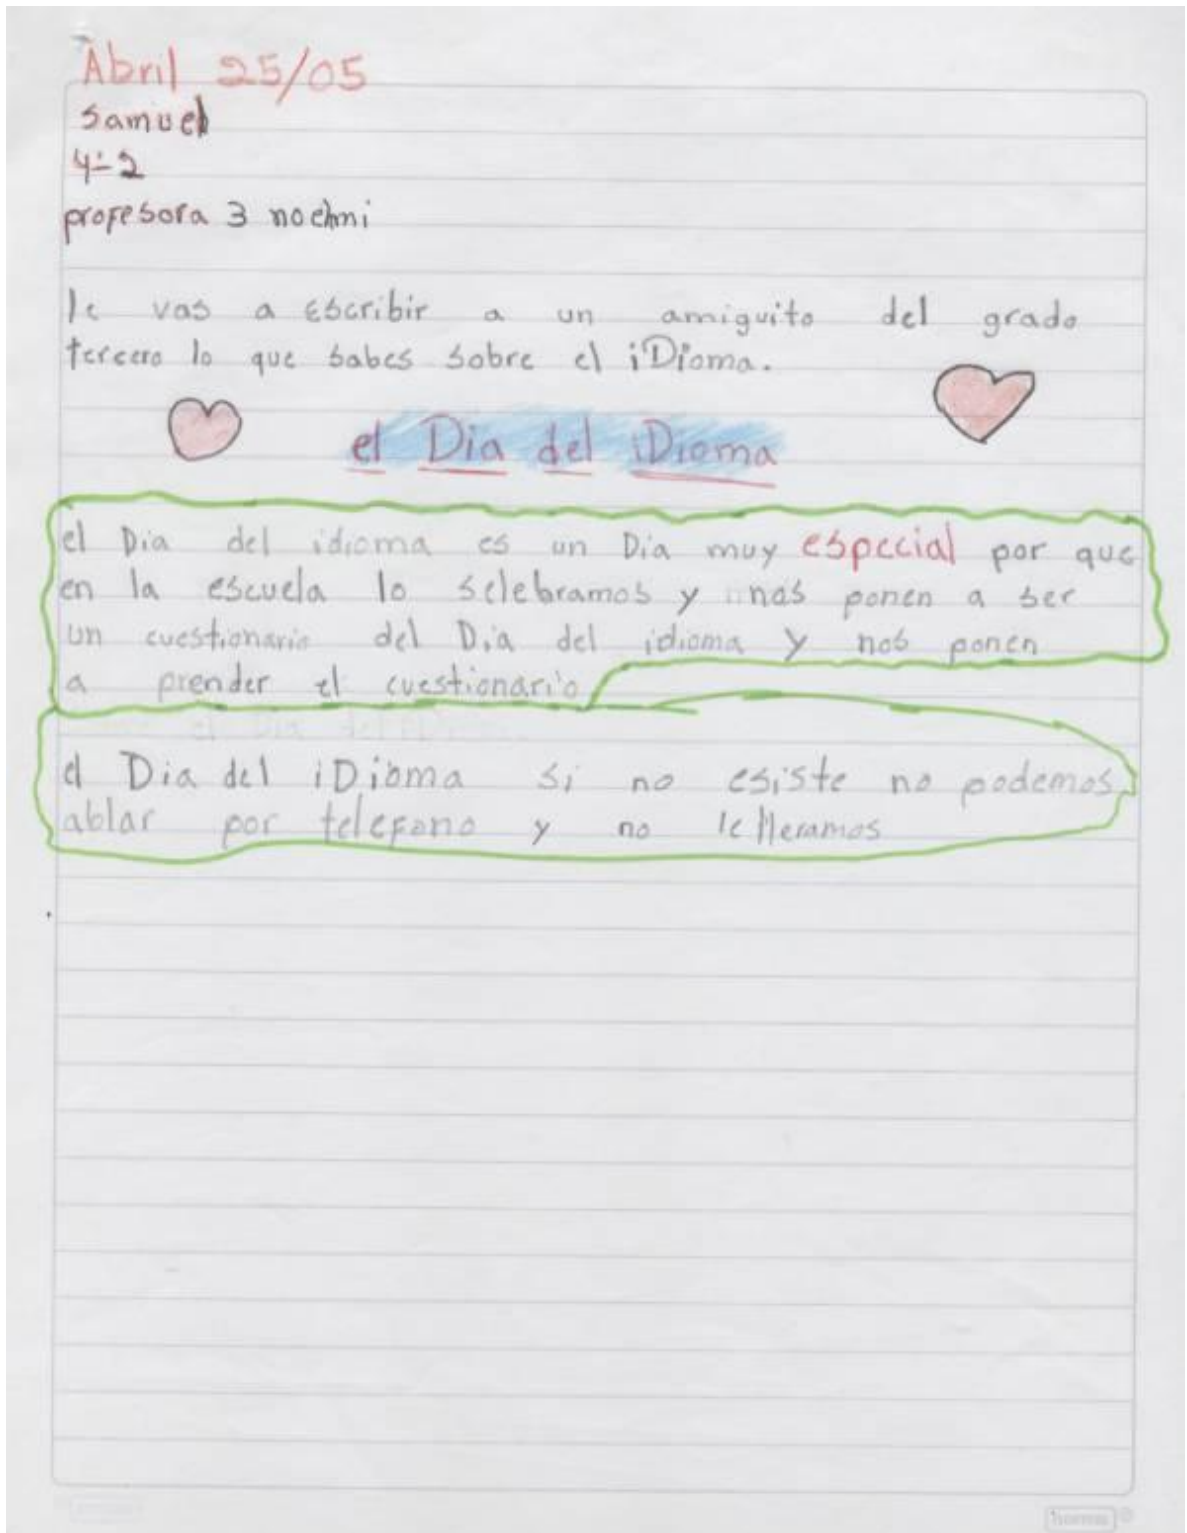 Abril 25/05
Samuel
4-2
profesora 3 noehmi
le vas a escribir a un amiguito del grado
tercero lo que sabes sobre el iDioma.
el Dia del iDioma
el Dia del idioma es un Dia muy especial por que
en la escuela lo selebramos y nos ponen a ser
un cuestionario del Dia del idioma y nos ponen
a prender el cuestionario
el Dia del iDioma si no esiste no podemos
ablar por telefono y no le lleramos
norma